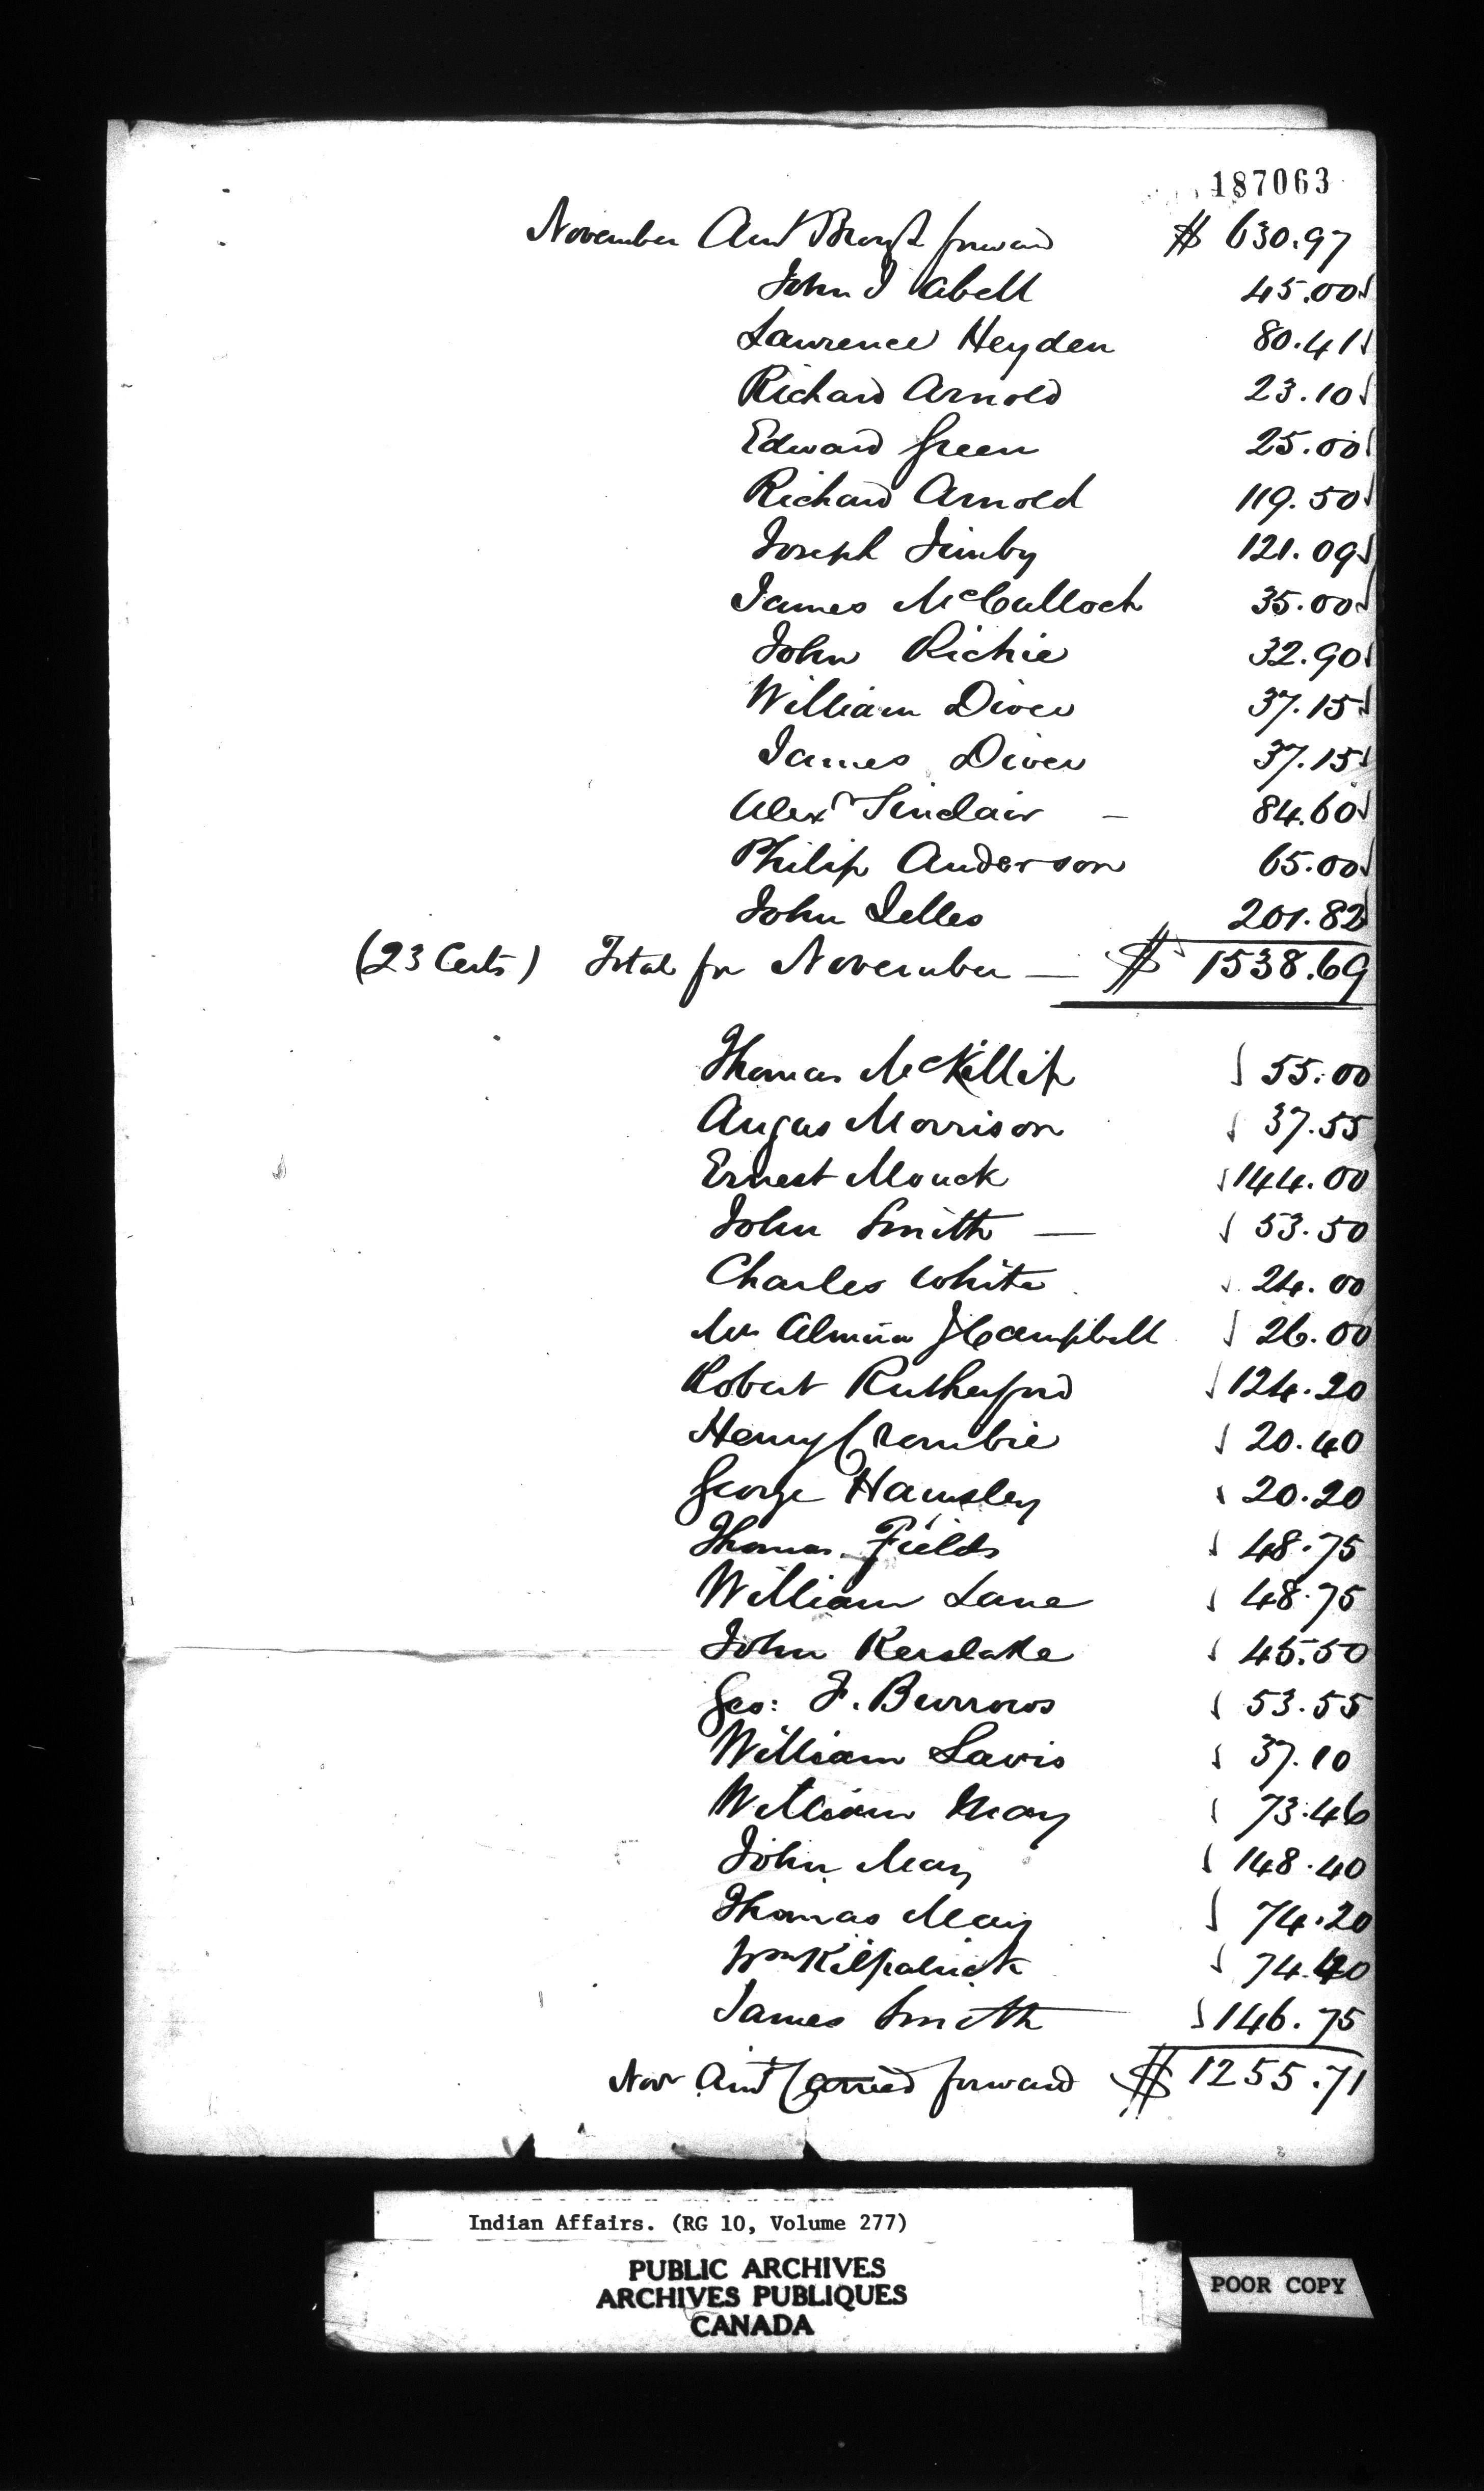 187063
November Amt Brought forward $ 630.97
John J Abell 45.00
Lawrence Heyden 80.41
Richard Arnold 23.10
Edward Green 25.00
Richard Arnold 119.50
Joseph 121.09
James McCulloch 35.00
John Richie 32.90
William Diver 37.15
James Diver 37.15
Alexr Sinclair — 84.60
Philip Anderson 65.00
John 201.82
(23 Certs) Total for November — $ 1538.69
Thomas McKillip 55.00
Angus Morrison 37.55
Ernest Monck 144.00
John Smith — 53.50
Charles White 24.00
Mrs Almira J Campbell 26.00
Robert Rutherford 124.20
Henry Crombie 20.40
George Hamsley 20.20
Thomas Fields 48.75
William Lane 48.75
John Kerslake 45.50
Geo: F. Burrows 53.55
William Lavis 37.10
William May 73.46
John May 148.40
Thomas May 74.20
Wm Kilpatrick 74.40
James Smith 146.75
Nov Amt Carried forward $ 1255.71
Indian Affairs. (RG 10, Volume 277)
PUBLIC ARCHIVES
ARCHIVES PUBLIQUES
CANADA
POOR COPY